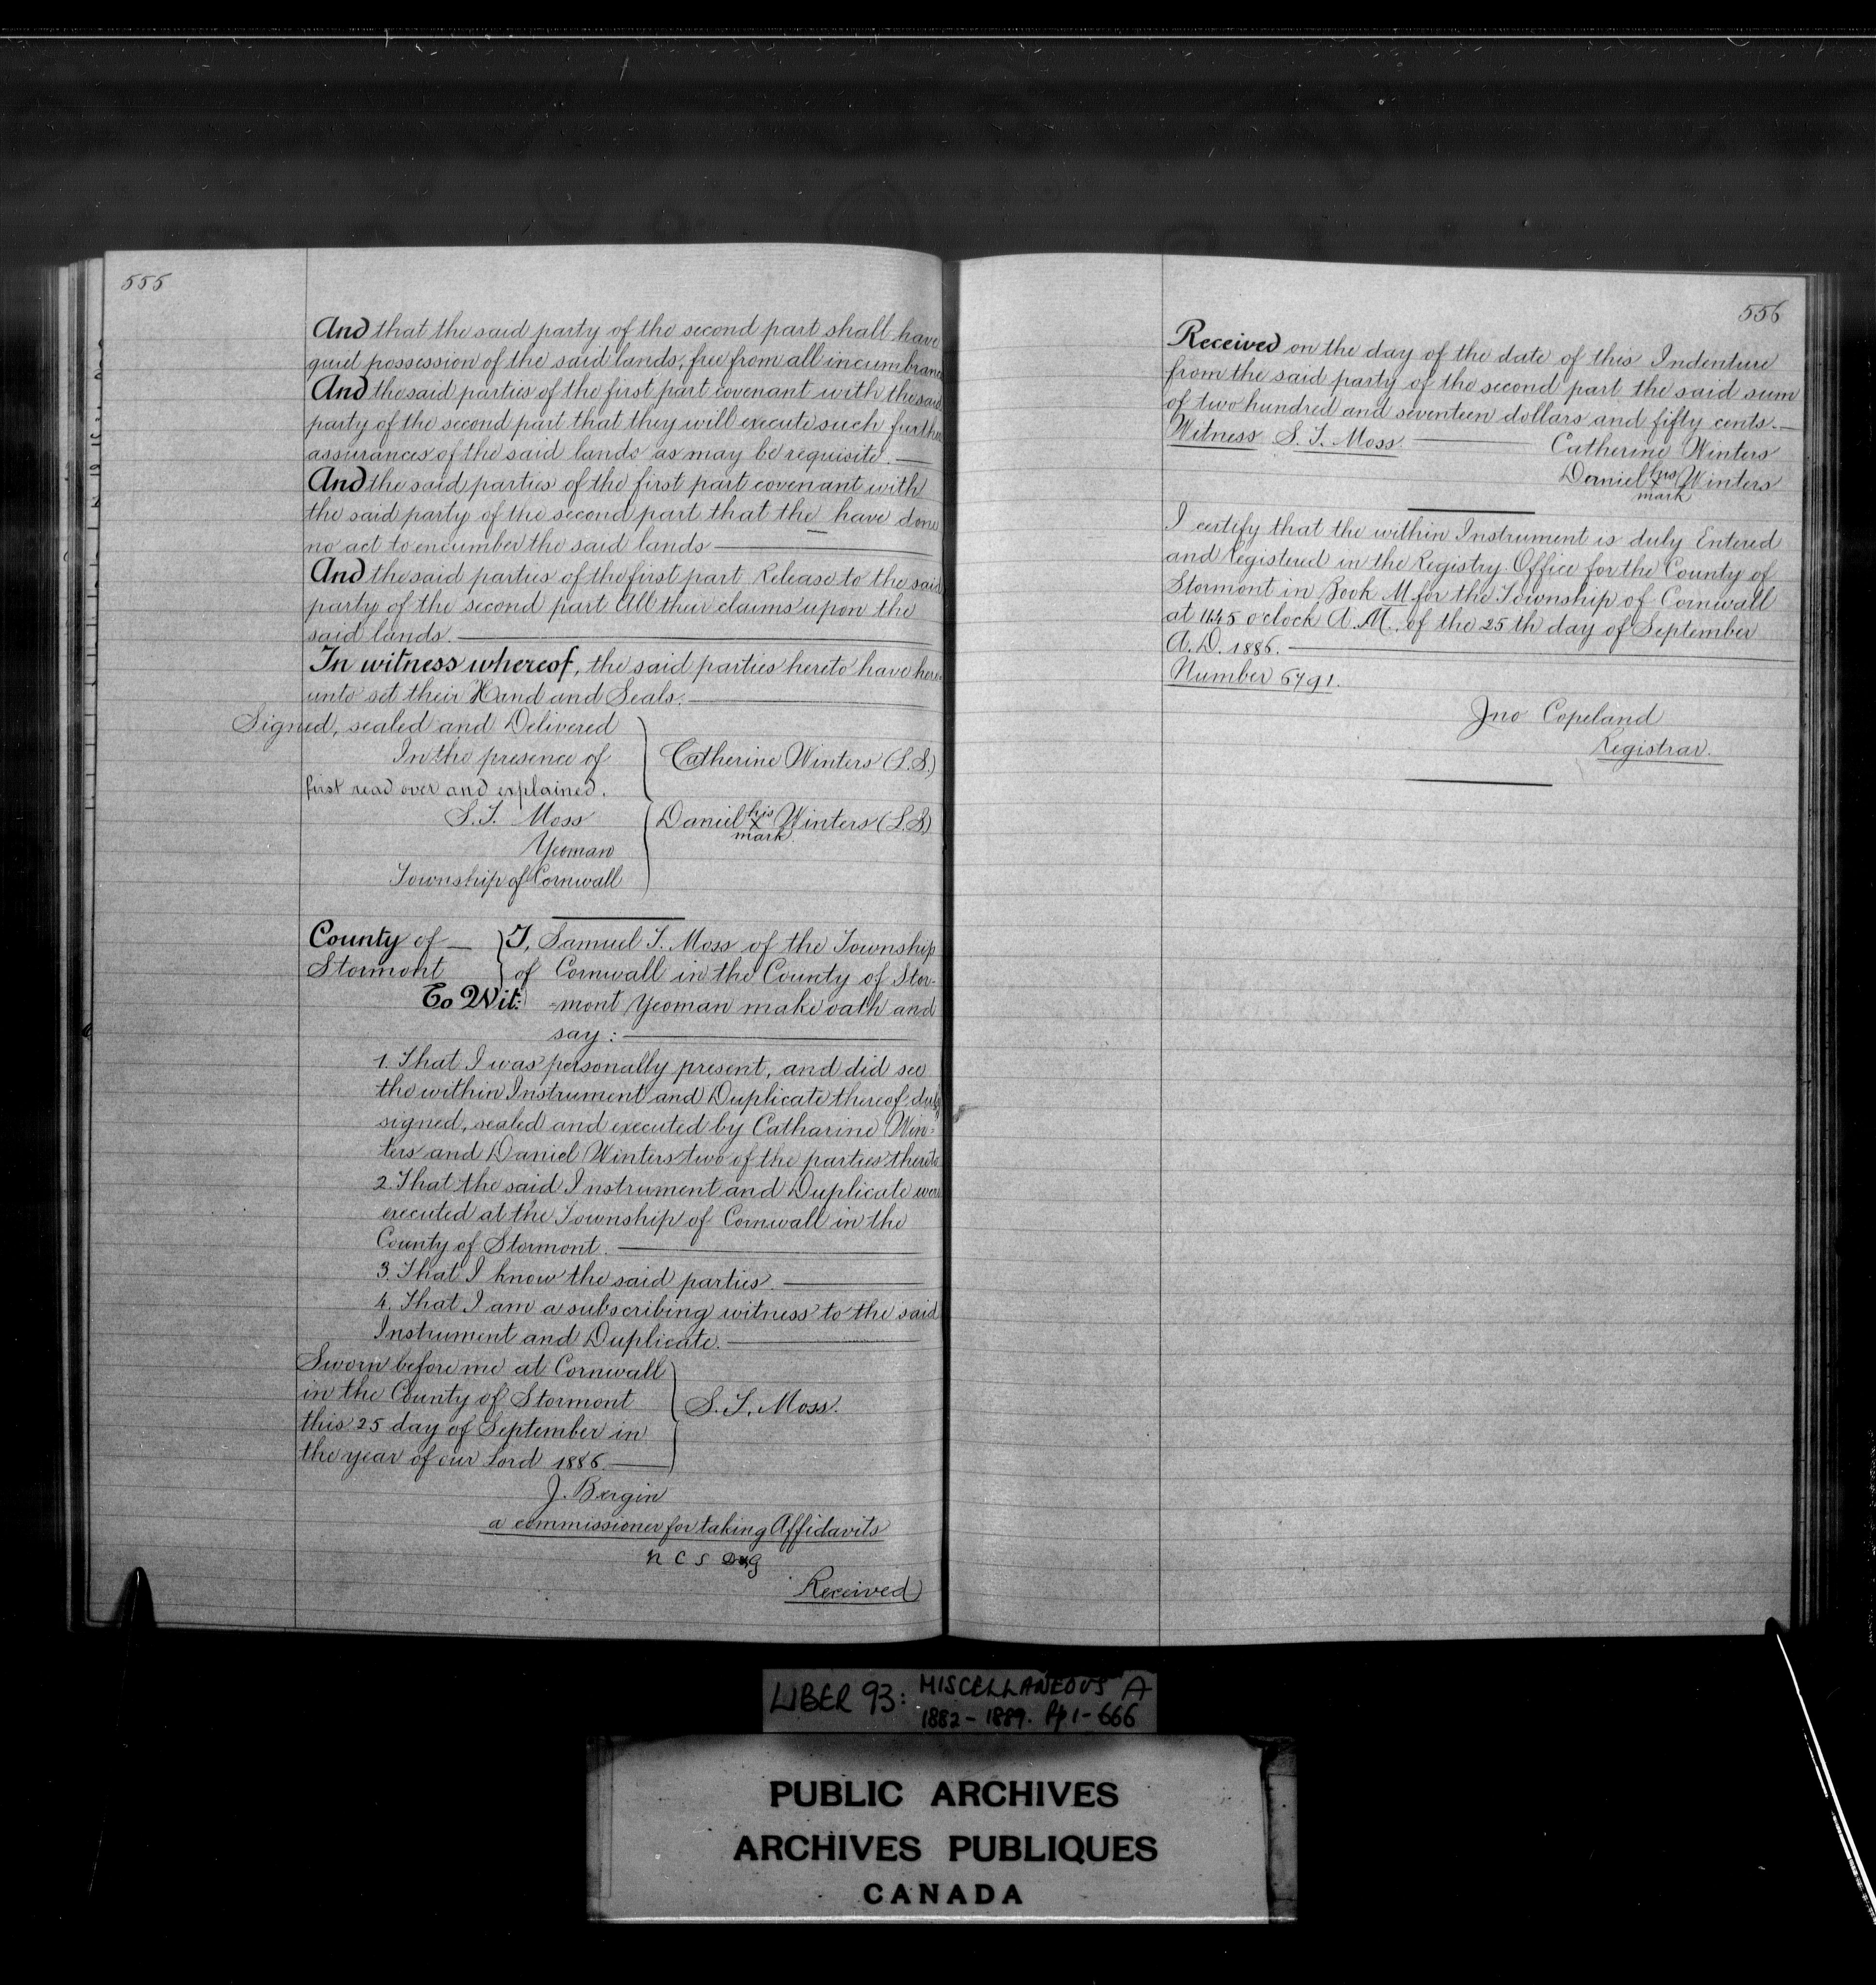 555
And that the said party of the second part shall have
quiet possession of the said lands, free from all incumbranc
And the said parties of the first part covenant with the said
party of the second part that they will execute such further
assurances of the said lands as may be requisite.
And the said parties of the first part covenant with
the said party of the second part that the have done
no act to encumber the said lands
And the said parties of the first part Release to the said
party of the second part All their claims upon the
said lands.
In witness whereof, the said parties hereto have here-
unto set their Hand and Seals.
Signed, sealed and Delivered
In the presence of
first read over and explained.
S. T. Moss
Yeoman
Township of Cornwall
Catherine Winters (L.S.)
Daniel his X mark Winters (L.S.)
County of
Stormont
To Wit:
I, Samuel T. Moss of the Township
of Cornwall in the County of Stor-
-mont Yeoman make oath and
say:
1. That I was personally present, and did see
the within Instrument and Duplicate thereof duly
signed, sealed and executed by Catharine Win-
ters and Daniel Winters two of the parties thereto
2. That the said Instrument and Duplicate were
executed at the Township of Cornwall in the
County of Stormont.
3. That I know the said parties.
4. That I am a subscribing witness to the said
Instrument and Duplicate.
Sworn before me at Cornwall
in the County of Stormont
this 25 day of September in
the year of our Lord 1886.
S. T. Moss.
J. Bergin
a commissioner for taking Affidavits
Received
556
Received on the day of the date of this Indenture
from the said party of the second part the said sum
of two hundred and seventeen dollars and fifty cents.
Witness S. T. Moss. Catherine Winters
Daniel his X mark Winters
I certify that the within Instrument is duly Entered
and Registered in the Registry Office for the County of
Stormont in Book M for the Township of Cornwall
at 11.45 o'clock A.M., of the 25th day of September
A.D. 1886.
Number 6791.
Jno Copeland
Registrar.
LIBER 93: MISCELLANEOUS A
1882-1889. Pp 1-666
PUBLIC ARCHIVES
ARCHIVES PUBLIQUES
CANADA